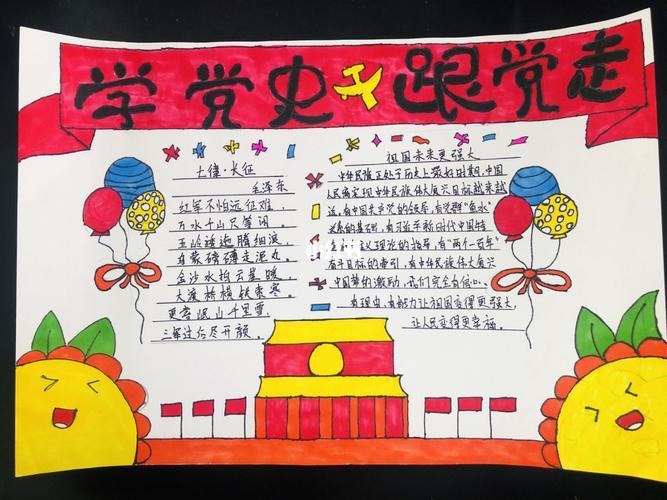 学党史 跟党走
七律·长征
毛泽东
红军不怕远征难,
万水千山只等闲。
五岭逶迤腾细浪,
乌蒙磅礴走泥丸。
金沙水拍云崖暖,
大渡桥横铁索寒。
更喜岷山千里雪,
三军过后尽开颜。
祖国未来更强大
中华民族正处于历史上最好时期,中国
人民离实现中华民族伟大复兴目标越来越
近。有中国共产党的领导,有党群“鱼水”
关系的基础,有习近平新时代中国特
色主义理论的指导,有“两个一百年”
奋斗目标的索引,有中华民族伟大复兴
中国梦的激励,我们完全有信心、
有理由、有能力让祖国变得更强大,
让人民变得更幸福。